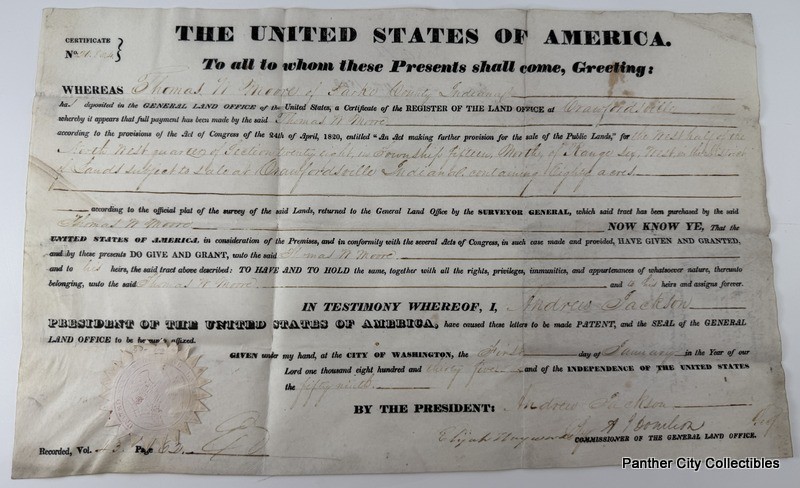 CERTIFICATE
No.
THE UNITED STATES OF AMERICA.
To all to whom these Presents shall come, Greeting:
WHEREAS Thomas W Moore of Parke County Indiana
ha deposited in the GENERAL LAND OFFICE of the United States, a Certificate of the REGISTER OF THE LAND OFFICE at Crawfordsville
whereby it appears that full payment has been made by the said Thomas W Moore
according to the provisions of the Act of Congress of the 24th of April, 1820, entitled "An Act making further provision for the sale of the Public Lands," for the West half of the
West quarter of Section twenty eight, in Township fifteen North, of Range West in the District
of Lands subject to sale at Crawfordsville Indiana containing Eighty acres.
according to the official plat of the survey of the said Lands, returned to the General Land Office by the SURVEYOR GENERAL, which said tract has been purchased by the said
Thomas W Moore NOW KNOW YE, That the
UNITED STATES OF AMERICA, in consideration of the Premises, and in conformity with the several Acts of Congress, in such case made and provided, HAVE GIVEN AND GRANTED,
and by these presents DO GIVE AND GRANT, unto the said Thomas W Moore
and to his heirs, the said tract above described: TO HAVE AND TO HOLD the same, together with all the rights, privileges, immunities, and appurtenances of whatsoever nature, thereunto
belonging, unto the said Thomas W Moore and to his heirs and assigns forever.
IN TESTIMONY WHEREOF, I, Andrew Jackson
PRESIDENT OF THE UNITED STATES OF AMERICA, have caused these letters to be made PATENT, and the SEAL of the GENERAL
LAND OFFICE to be hereunto affixed.
GIVEN under my hand, at the CITY OF WASHINGTON, the First day of January in the Year of our
Lord one thousand eight hundred and thirty five and of the INDEPENDENCE OF THE UNITED STATES
the fifty ninth
BY THE PRESIDENT: Andrew Jackson
By A J Donelson Secy
Elijah Hayward COMMISSIONER OF THE GENERAL LAND OFFICE.
Recorded, Vol. Page
Panther City Collectibles